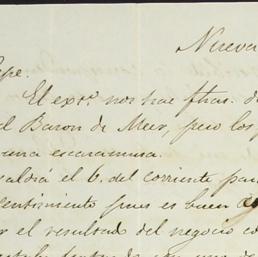 Nueva
pe.
El extº. nos trae fhas. d
l Baron de Meer, pero los
una escaramusa.
saldrá el 6. del corriente par
sentimiento pues es buen
r el resultado del negocio co